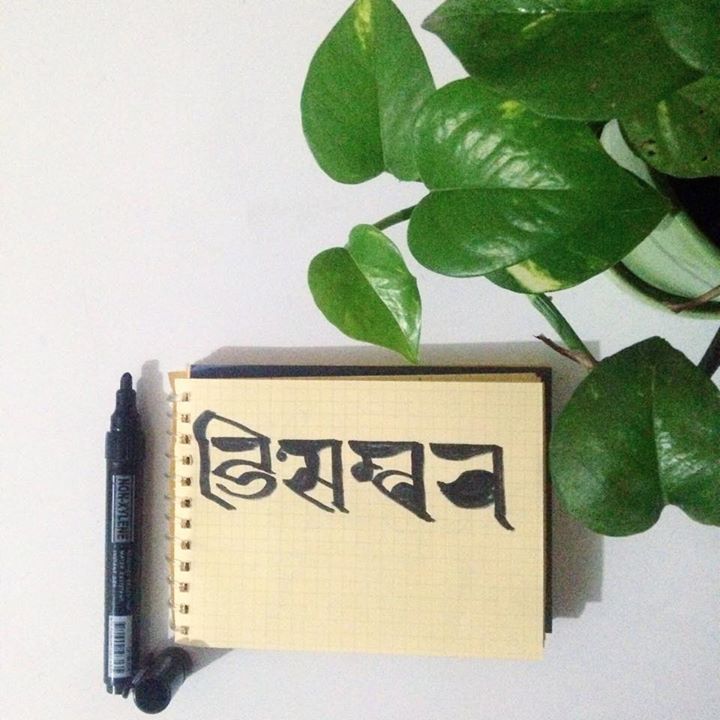 ডিসেম্বর
NON-XYLENE